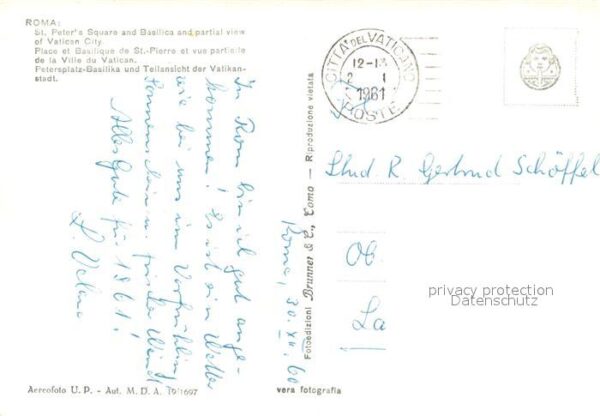 ROMA:
St. Peter's Square and Basilica and partial view
of Vatican City.
Place et Basilique de St.-Pierre et vue partielle
de la Ville du Vatican.
Petersplatz-Basilika und Teilansicht der Vatikan-
stadt.
CITTA' DEL VATICANO
12-13
2 1
1961
POSTE
Roma, 30.XII.60
In Rom bin ich gut ange-
kommen! Es ist ein Wetter
wie bei uns im Vorfrühling
Sonnenschein u. frischer Wind!
Alles Gute für 1961!
Fotoedizioni Brunner & C., Como - Riproduzione vietata
Stud. R. Gertrud Schöffel
Ob
La
privacy protection
Datenschutz
Aereofoto U. P. - Aut. M. D. A. 19/1697
vera fotografia